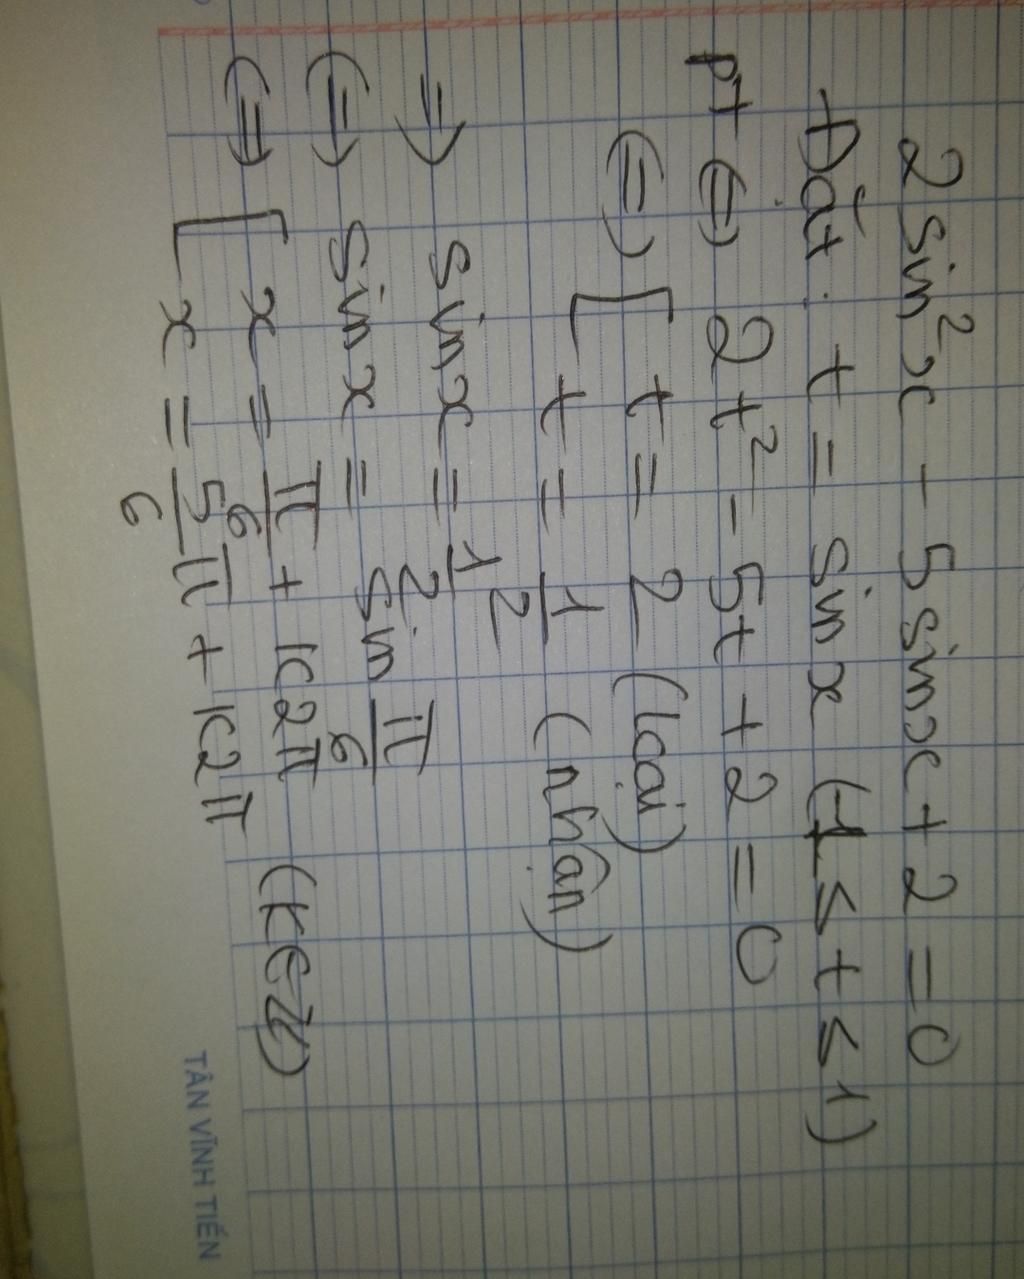 2sin²x - 5sinx + 2 = 0
Đặt t = sinx (-1 ≤ t ≤ 1)
pt ⇔ 2t² - 5t + 2 = 0
⇔ [ t = 2 (loại)
t = 1/2 (nhận)
⇒ sinx = 1/2
⇔ sinx = sin π/6
⇔ [ x = π/6 + k2π
x = 5π/6 + k2π (k∈ℤ)
TÂN VĨNH TIẾN